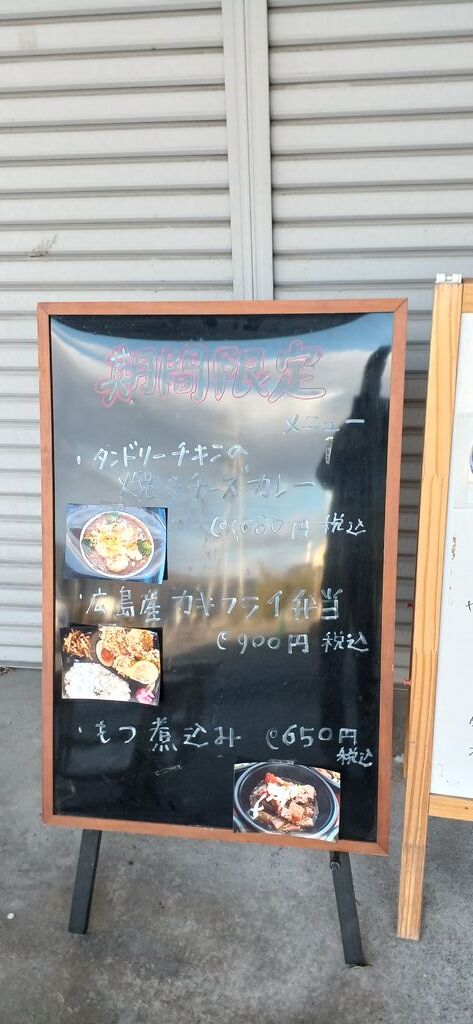 期間限定
メニュー
・タンドリーチキンの
焼きチーズカレー
@1,080円 税込
・広島産カキフライ弁当
@900円 税込
・もつ煮込み @650円
税込